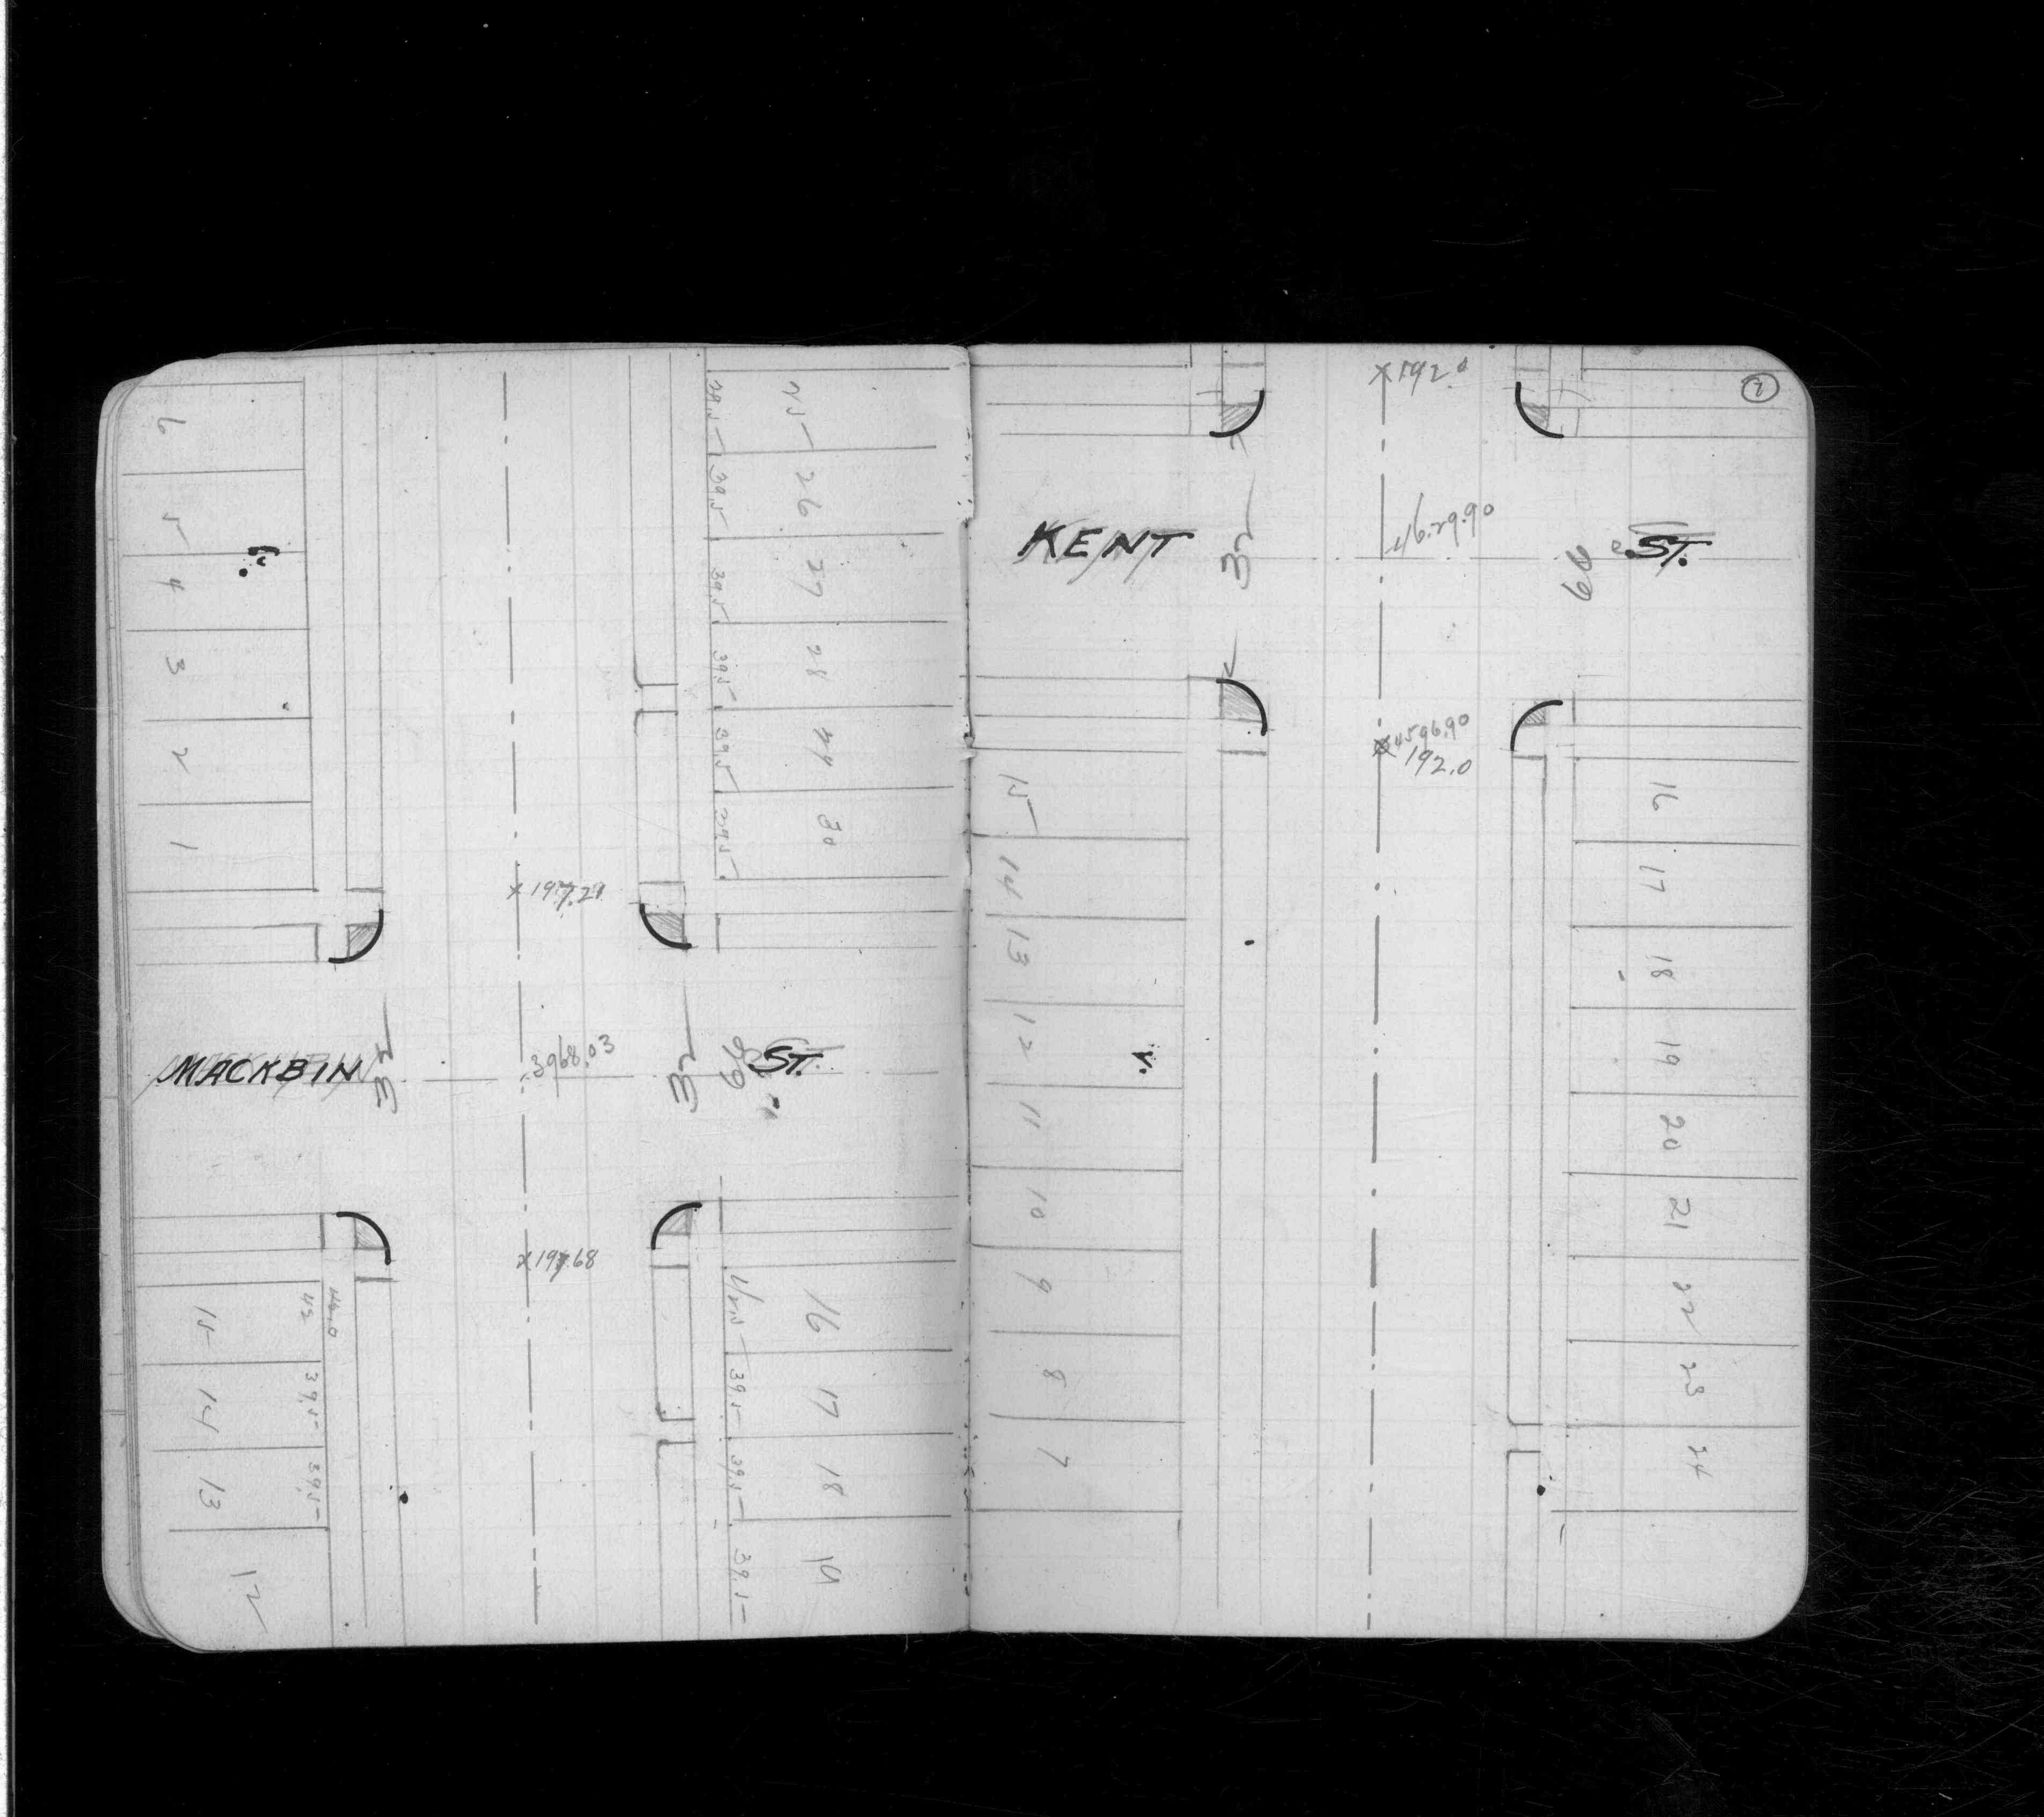 6
5
4
3
2
1
25
26
27
28
29
30
39.5
39.5
39.5
39.5
39.5
39.5
x 197.21
MACKBIN ST.
32
3968.03
32
66
x 197.68
15
14
13
12
46.0
42
39.5
39.5
16
17
18
19
39.5
39.5
39.5
x 192.0
2
KENT ST.
32
46.29.90
66
4596.90
192.0
15
14
13
12
11
10
9
8
7
16
17
18
19
20
21
22
23
24